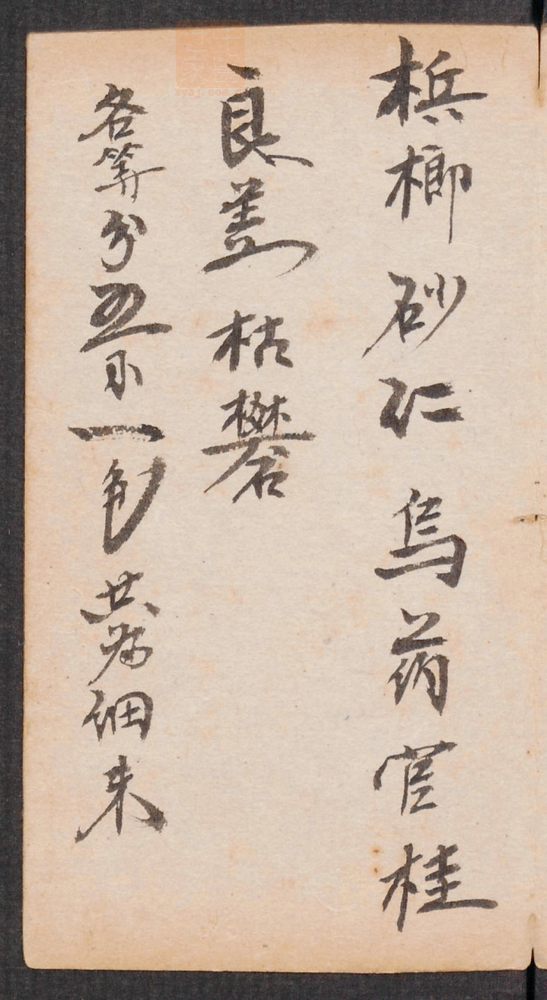 梹榔砂仁烏药官桂
良姜枯礬
各等分五分一包共為細末